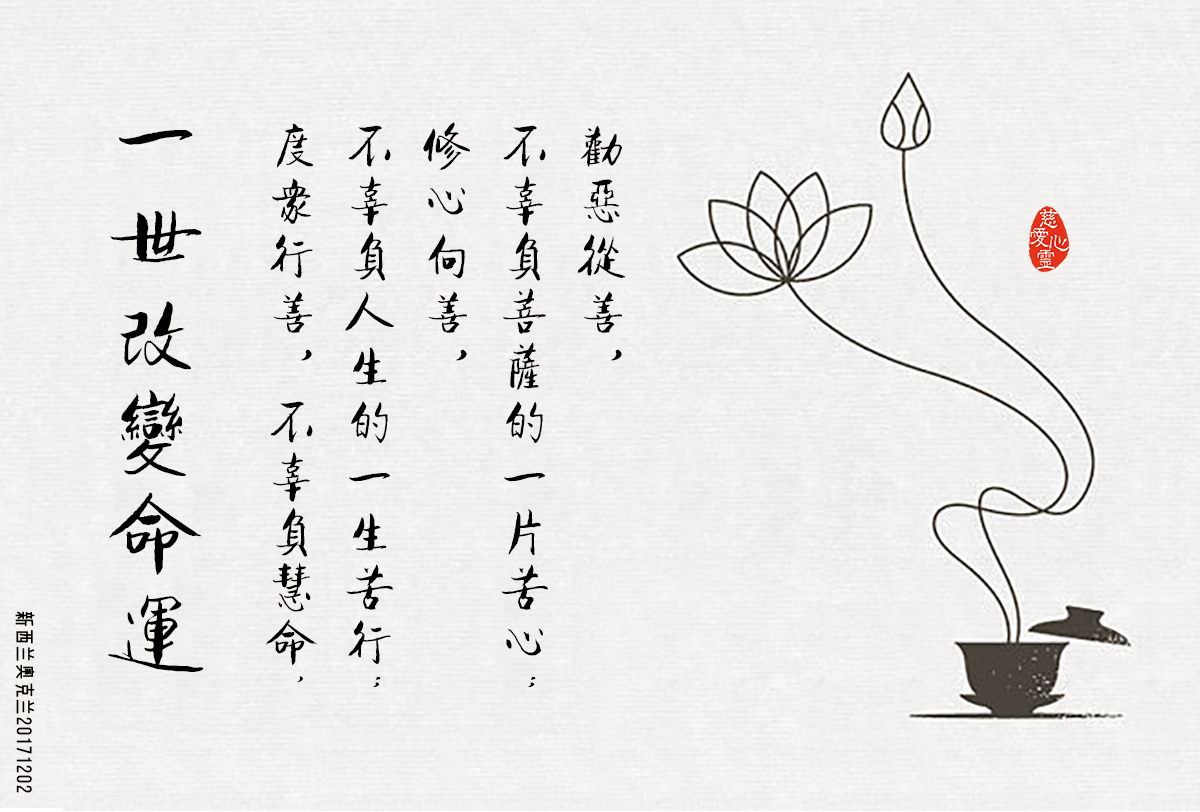 勸惡從善，
不辜負菩薩的一片苦心；
修心向善，
不辜負人生的一生苦行；
度衆行善，不辜負慧命，
一世改變命運
慈
愛心
靈
新西兰奥克兰20171202